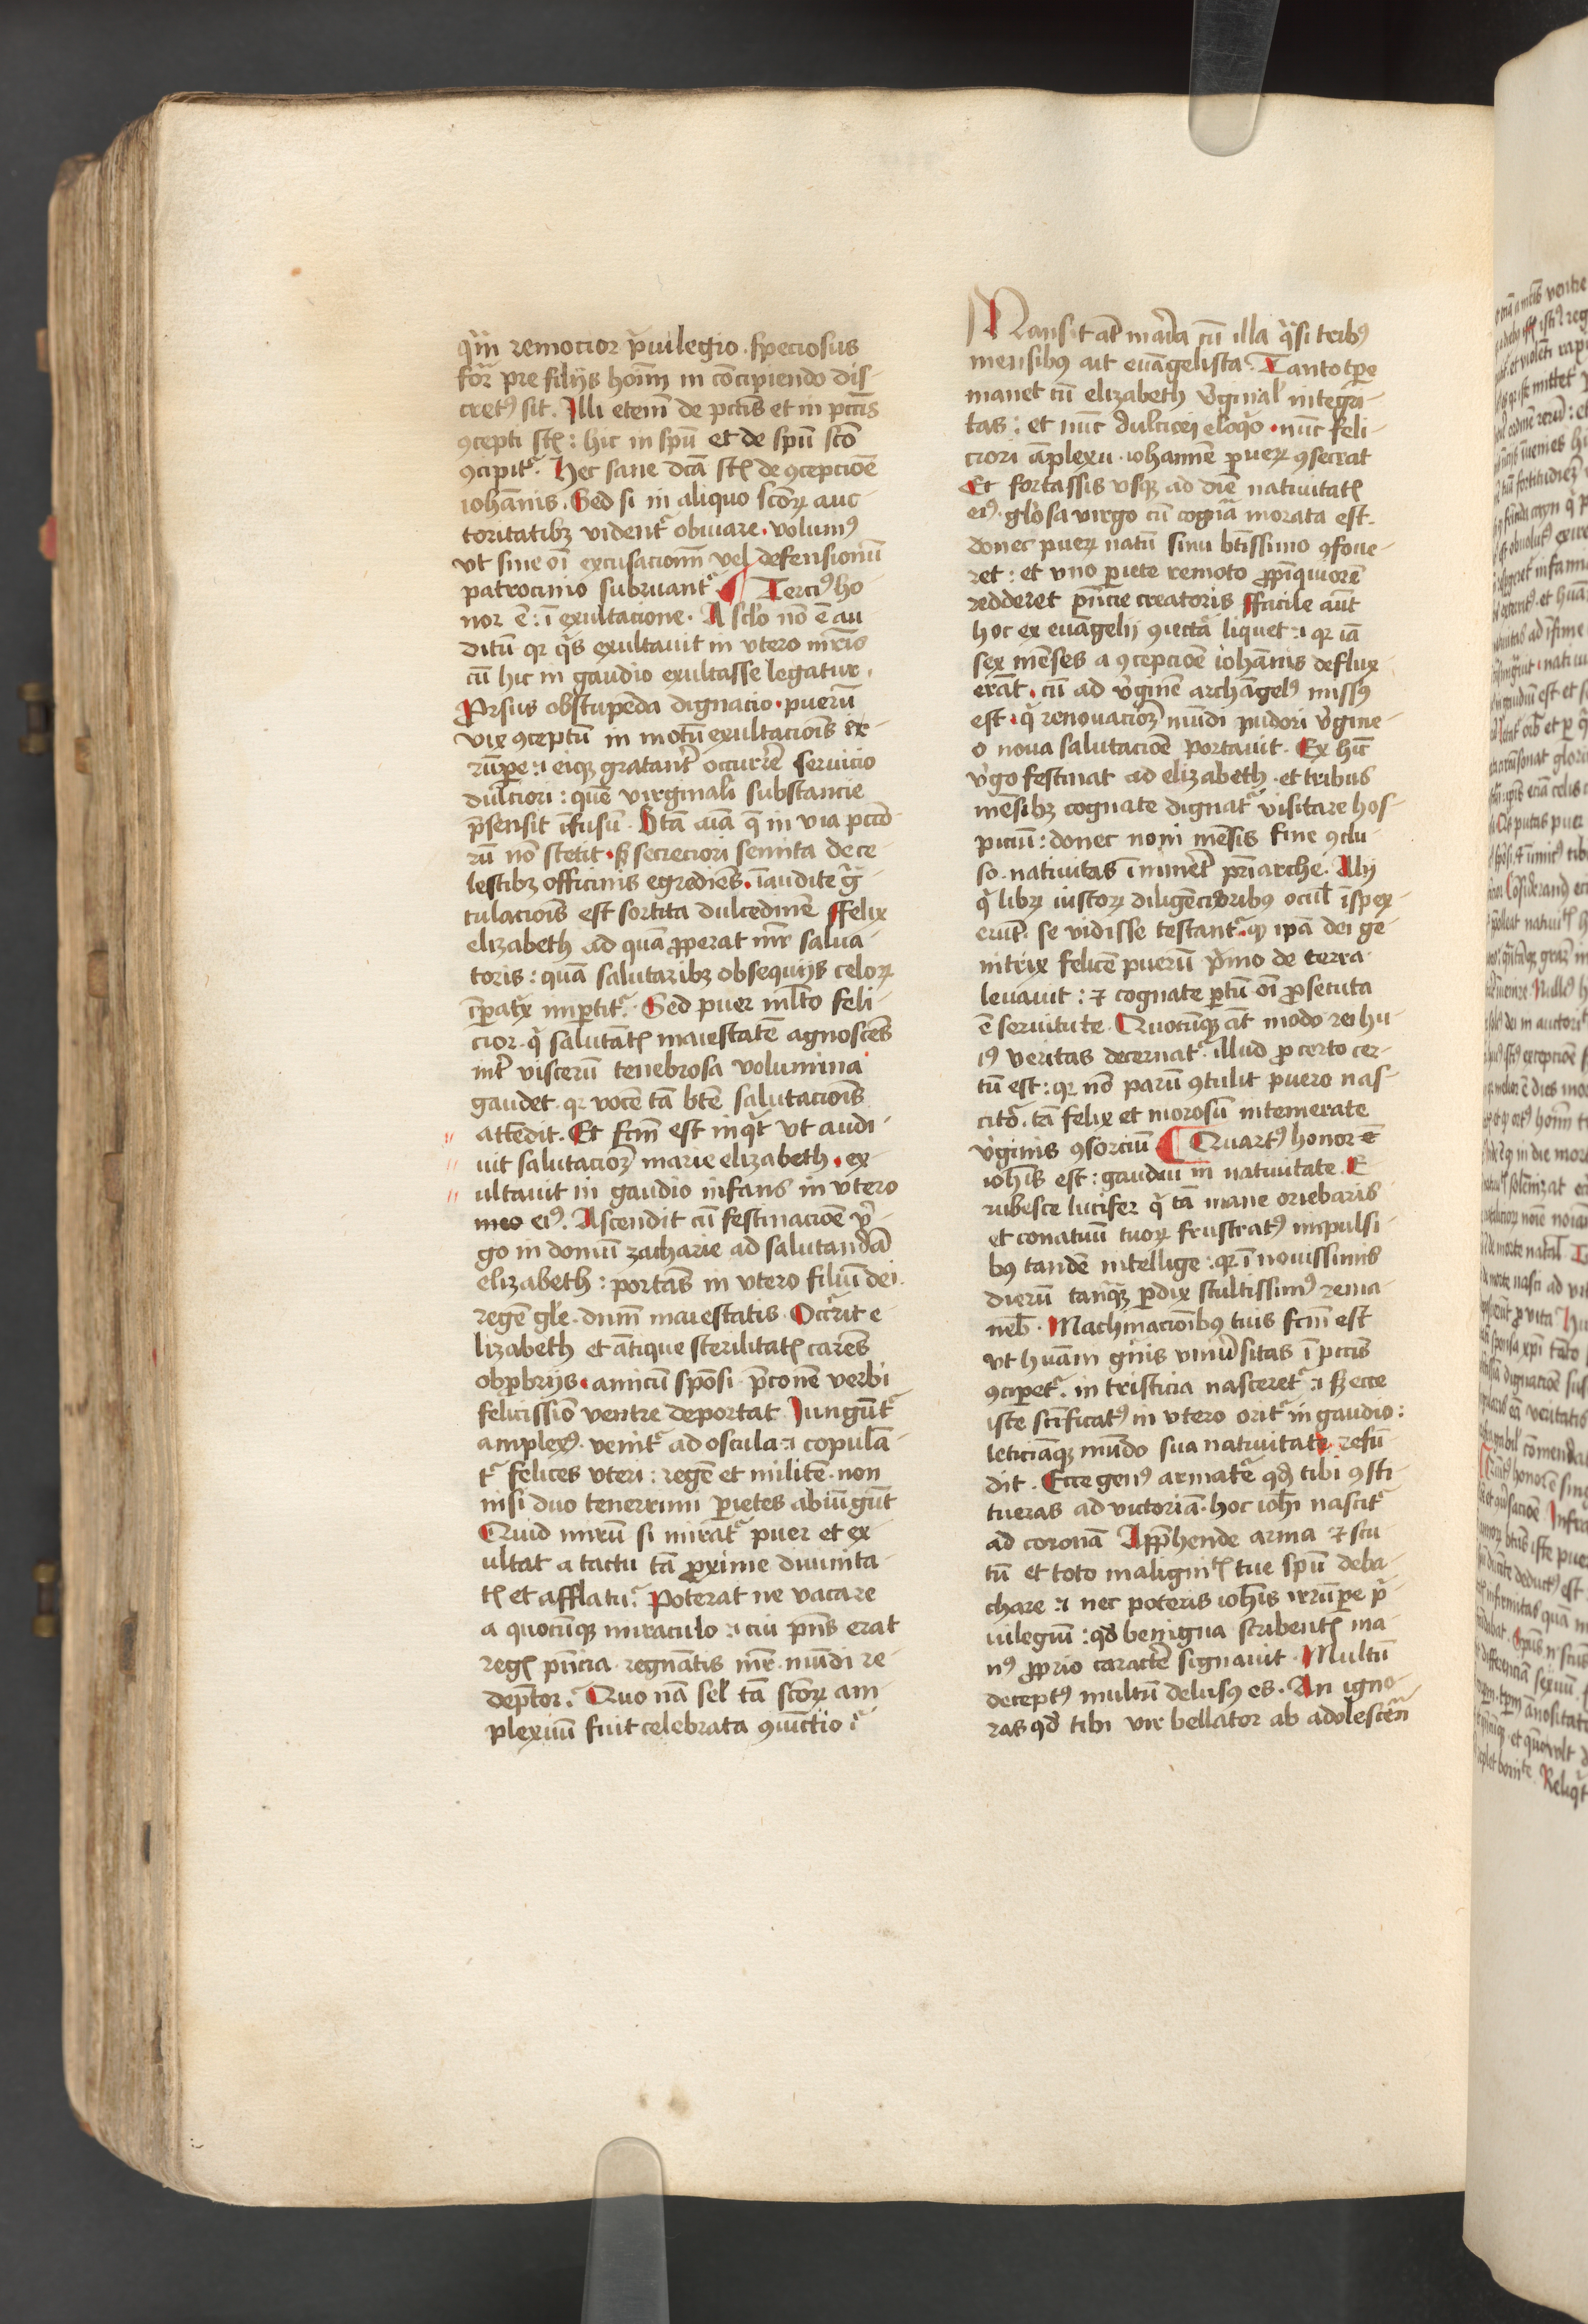 q̄m remocior p̍uilegio. speciosus
for̄ pre filijs hoīm in cōcipiendo dis-
cret⁹ sit. Illi eteni̅ de pcc̄is et in pcc̄is
ꝯcepti sūt : hic in spū et de spū scō
ꝯcipit᷑. Hec sane dc̄a sūt de ꝯcepcioē
iohānis. Sed si in aliquo scōꝝ auc-
toritatibꝫ vident᷑ obuiare. volum⁹
vt sine oī excusacionū vel defensionū
patrocinio subruant᷑ ¶ Terci⁹ ho
nor ē : ī exultacione. A sclo nō ē au
ditū qꝛ q̍s exultauit in vtero mr̄is
cū hic in gaudio exultasse legatur.
Prorsus obstupēda dignacio. puerū
vix ꝯceptū in motū exultaciōis er-
rūpe : eiqꝫ gratant̄ occurrē seruicio
dulciori : quē virginali substancie
p̄sensit īfusū. Btā aīa q̄ in via pccō-
rū nō stetit. sꝫ secreciori semita de ce
lestibꝫ officinis egrediēs. īaudite g̃-
tulaciōis est sortita dulcedinē ffelix
elizabeth ad quā ꝓperat mr̄ salua-
toris : quā salutaribꝫ obsequijs celoꝝ
īꝑatx̍ imꝑtit᷑. Sed puer ml̄to feli-
cior. q̍ salutātꝭ maiestatē agnoscēs
int̄ viscerū tenebrosa volumina
gaudet. qꝛ vocē tā btē salutaciōis
attēdit. Et fcm̄ est inq̍t vt audi-
uit salutacioꝫ marie elizabeth. ex
ultauit in gaudio infans in vtero
meo ei⁹. Ascendit cū festinacioē v̍-
go in domū zacharie ad salutandā
elizabeth : portās in vtero filiū dei.
regē gle. dnm̄ maiestatis. Occ̄rit e-
lizabeth et ātique sterilitatꝭ carēs
obꝓbrijs. amicū spōsi p̄conē verbi
felicissiō ventre deportat Jungūt᷑
amplex⁹. venit᷑ ad oscula : copulā-
t᷑ felices vteri : regē et militē. non
nisi duo tenerrimi ꝑietes abiūgūt
Quid mirū si mirat᷑ puer et ex-
ultat a tactu tā ꝓxime diuinita-
tꝭ et afflatu? Poterat ne vacare
a quocūqꝫ miraculo : cui pn̄s erat
regꝭ pn̄cia. regnātis mr̄. mūdi re-
dēptor? Quo nā sel̄ tā scōꝝ am
plexuū fuit celebrata ꝯiūctio?
Mansit at̄ maria cū illa q̍̄si trib⁹
mensib⁹ ait euāgelista. Tanto tꝑe
manet cū elizabeth v̍ginal̄ integri-
tas : et nūc dulcicei eloq̍o. nūc feli-
ciori āplexu. iohannē pueꝝ ꝯsecrat
Et fortassis vsqꝫ ad diē natiuitatꝭ
ei⁹. gl̄osa virgo cū cogn̄a morata est.
donec pueꝝ natū sinu btissimo ꝯfoue-
ret : et vno ꝑiete remoto ꝓpīquiorē
redderet pn̄cie creatoris ffacile aūt
hoc ex euāgelij ꝯiectā liquet : qꝛ iā
sex mēses a ꝯcepcioē iohānis deflux-
erāt. cū ad v̍ginē archāgel⁹ miss⁹
est. q̍ renouacioꝫ mūdi pudori v̍gine-
o noua salutacioē portauit. Ex hīc
v̍go festinat ad elizabeth. et tribus
mēsibꝫ cognate dignat᷑ visitare hos-
piciū : donec noni mēsis fine ꝯclu-
so. natiuitas īminet̄ pr̄iarche. Alij
q̍ libꝝ iustoꝝ diligēciōribus ocul̄ īspex-
erūt. se vidisse testant᷑. qꝫ ipā dei ge-
nitrix felicē puerū p̍mo de terra
leuauit : et cognate ꝑtū oī ꝓsecuta
ē seruitute. Quocūqꝫ āt modo rei hu-
i⁹ veritas decernat᷑. illud ꝓ certo cer-
tū est : qꝛ nō parū ꝯtulit puero nas-
cito᷑. tā felix et morosū intemerate
v̍ginis ꝯsorciū ¶ Quart⁹ honor ē
ioh̄is est : gaudiū in natiuitate. E-
rubesce lucifer q̍ tā mane oriebaris
et conatuū tuoꝝ frustrat⁹ impulsi-
b⁹ tandē intellige : qꝛ ī nouissimis
dierū tanq̄ꝫ ꝑdix stultissim⁹ rema-
neb̄. Machinacionib⁹ tuis fcm̄ est
vt huāni gn̄is vniu̍sitas ī pcc̄is
ꝯciꝑet᷑. in tristicia nasceret᷑ : sꝫ ecce
iste scīficat⁹ in vtero orit᷑ in gaudio :
leticiāqꝫ mūdo sua natiuitate refū-
dit. Ecce gen⁹ armatē qd̄ tibi ꝯsti-
tueras ad victoriā. hoc ioh̄i nascit᷑
ad coronā Apꝑhende arma et scu
tū et toto malignitꝭ tue spū deba-
chare : nec poteris ioh̄is irrūpe p̍-
uilegiū : qd̄ benigna scribentꝭ ma-
n⁹ ꝓprio caractē signauit. Multū
decept⁹ multū delus⁹ es. An igno-
ras qd̄ tibi vir bellator ab adolescēti